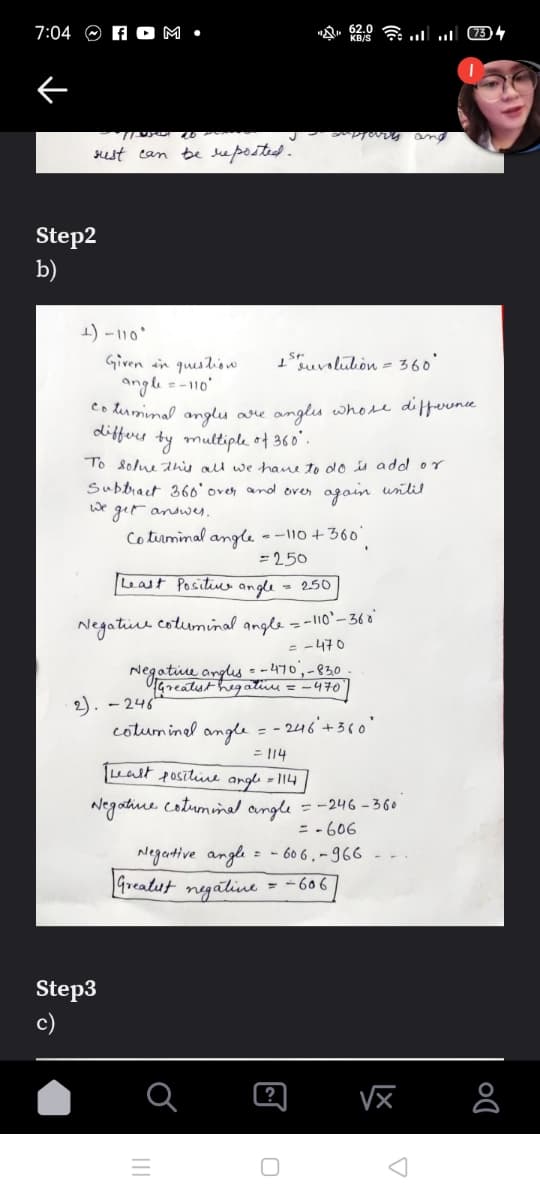 7:04
62.0
KB/S
73
1
and
rest can be reposted.
Step2
b)
1) -110°
Given in question 1st revolution = 360°
angle = -110°
Coterminal angles are angles whose difference
differs by multiple of 360°.
To solve this all we have to do is add or
Subtract 360° over and over again until
we get answer.
Coterminal angle = -110 + 360°
= 250
Least Positive angle = 250
Negative coterminal angle = -110° - 360°
= -470
Negative angles = -470°, -830.
Greatest negative = -470°
2). - 246°
coterminal angle = - 246° + 360°
= 114
Least positive angle = 114
Negative coterminal angle = -246 - 360°
= - 606
Negative angle = - 606, - 966 - - .
Greatest negative = - 606
Step3
c)
?
√x